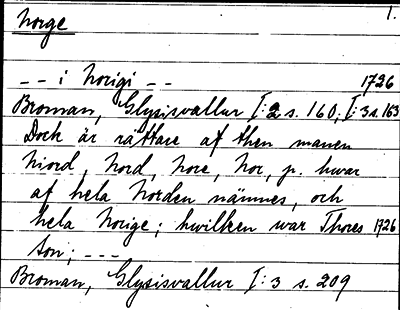 Norge 1.
-- i Norigi -- 1726
Broman, Glysisvallur I:2 s. 160, I:3 s. 163
Doch är rättare af then mannen
Niord, Nord, Nore, Nor, p. hwar
af hela Norden nämnes, och
hela Norige; hwilken war Thores 1726
son; ---
Broman, Glysisvallur I:3 s. 209